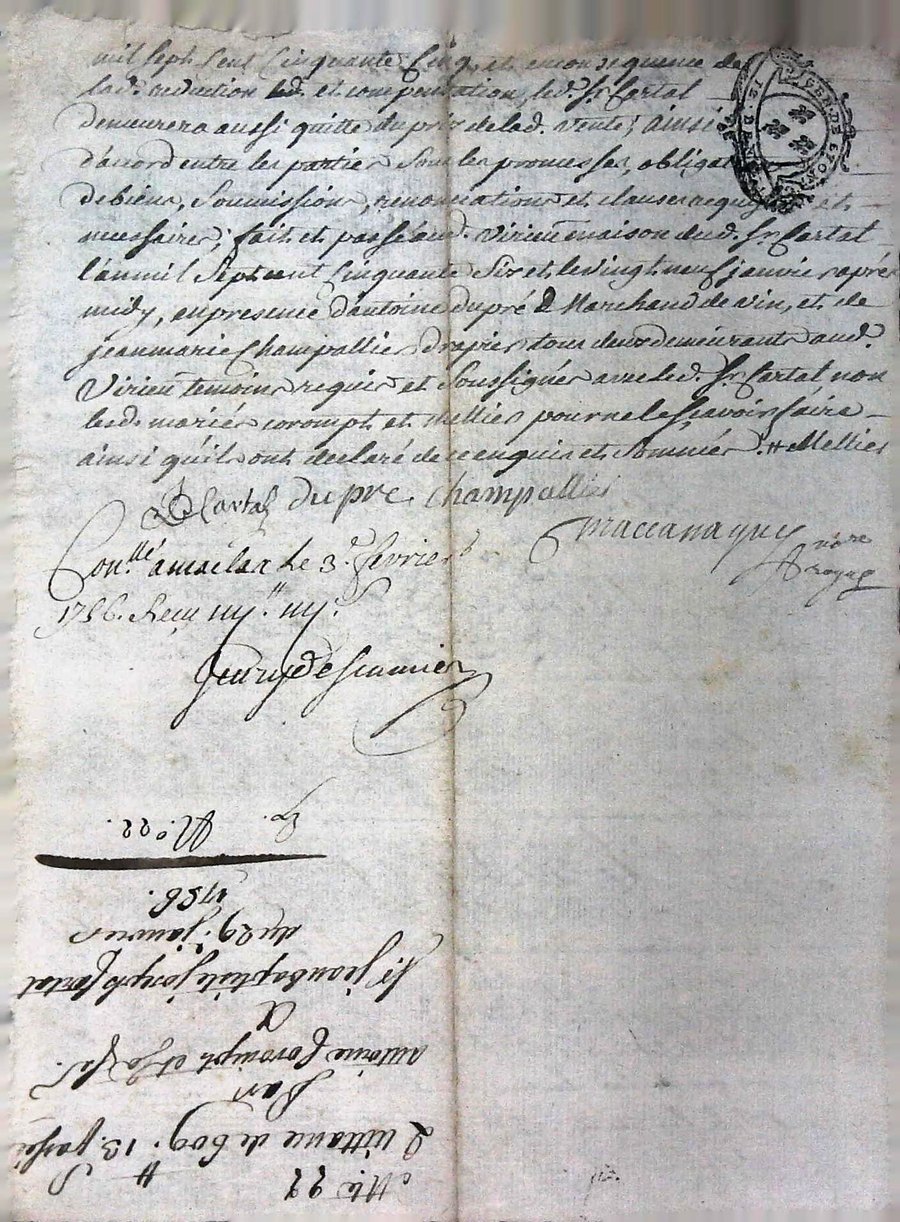 mil Sept Cent Cinquante Cinq, et en consequence de
lad. reduction et compensation, led. Sr. Cartal
demeurera aussi quitte du prix de lad. vente; ainsi
d'acord entre les parties Sous les promesses, obligat
de biens, Soumissions, renonciations et clauses requises et
necessaires; fait et passé aud. Virieu maison dud. Sr. Cartal
l'an mil Sept cent Cinquante Six et le vingt neuf janvier après
midy, en presence d'antoine dupré Marchand de vin, et de
jean marie Champallier drapier tous deux demeurants aud.
Virieu temoins requis et Soussignés avec led. Sr. Cartal non
lesd. mariés corompt et Mellier pour ne le Sçavoir faire
ainsi qu'ils ont declaré de ce enquis et Sommés. # Mellier
Cartal dupré Champallier
Maccanaguy nore royal
Con.llé a maclas le 3e. fevrier
1756. Reçu
No. 22.
1756.
du 29e. janvier
Sr. jean baptiste joseph Cartal
A
antoine Corompt et Sa fe.
Par
Quittance de 609. # 13. S passée